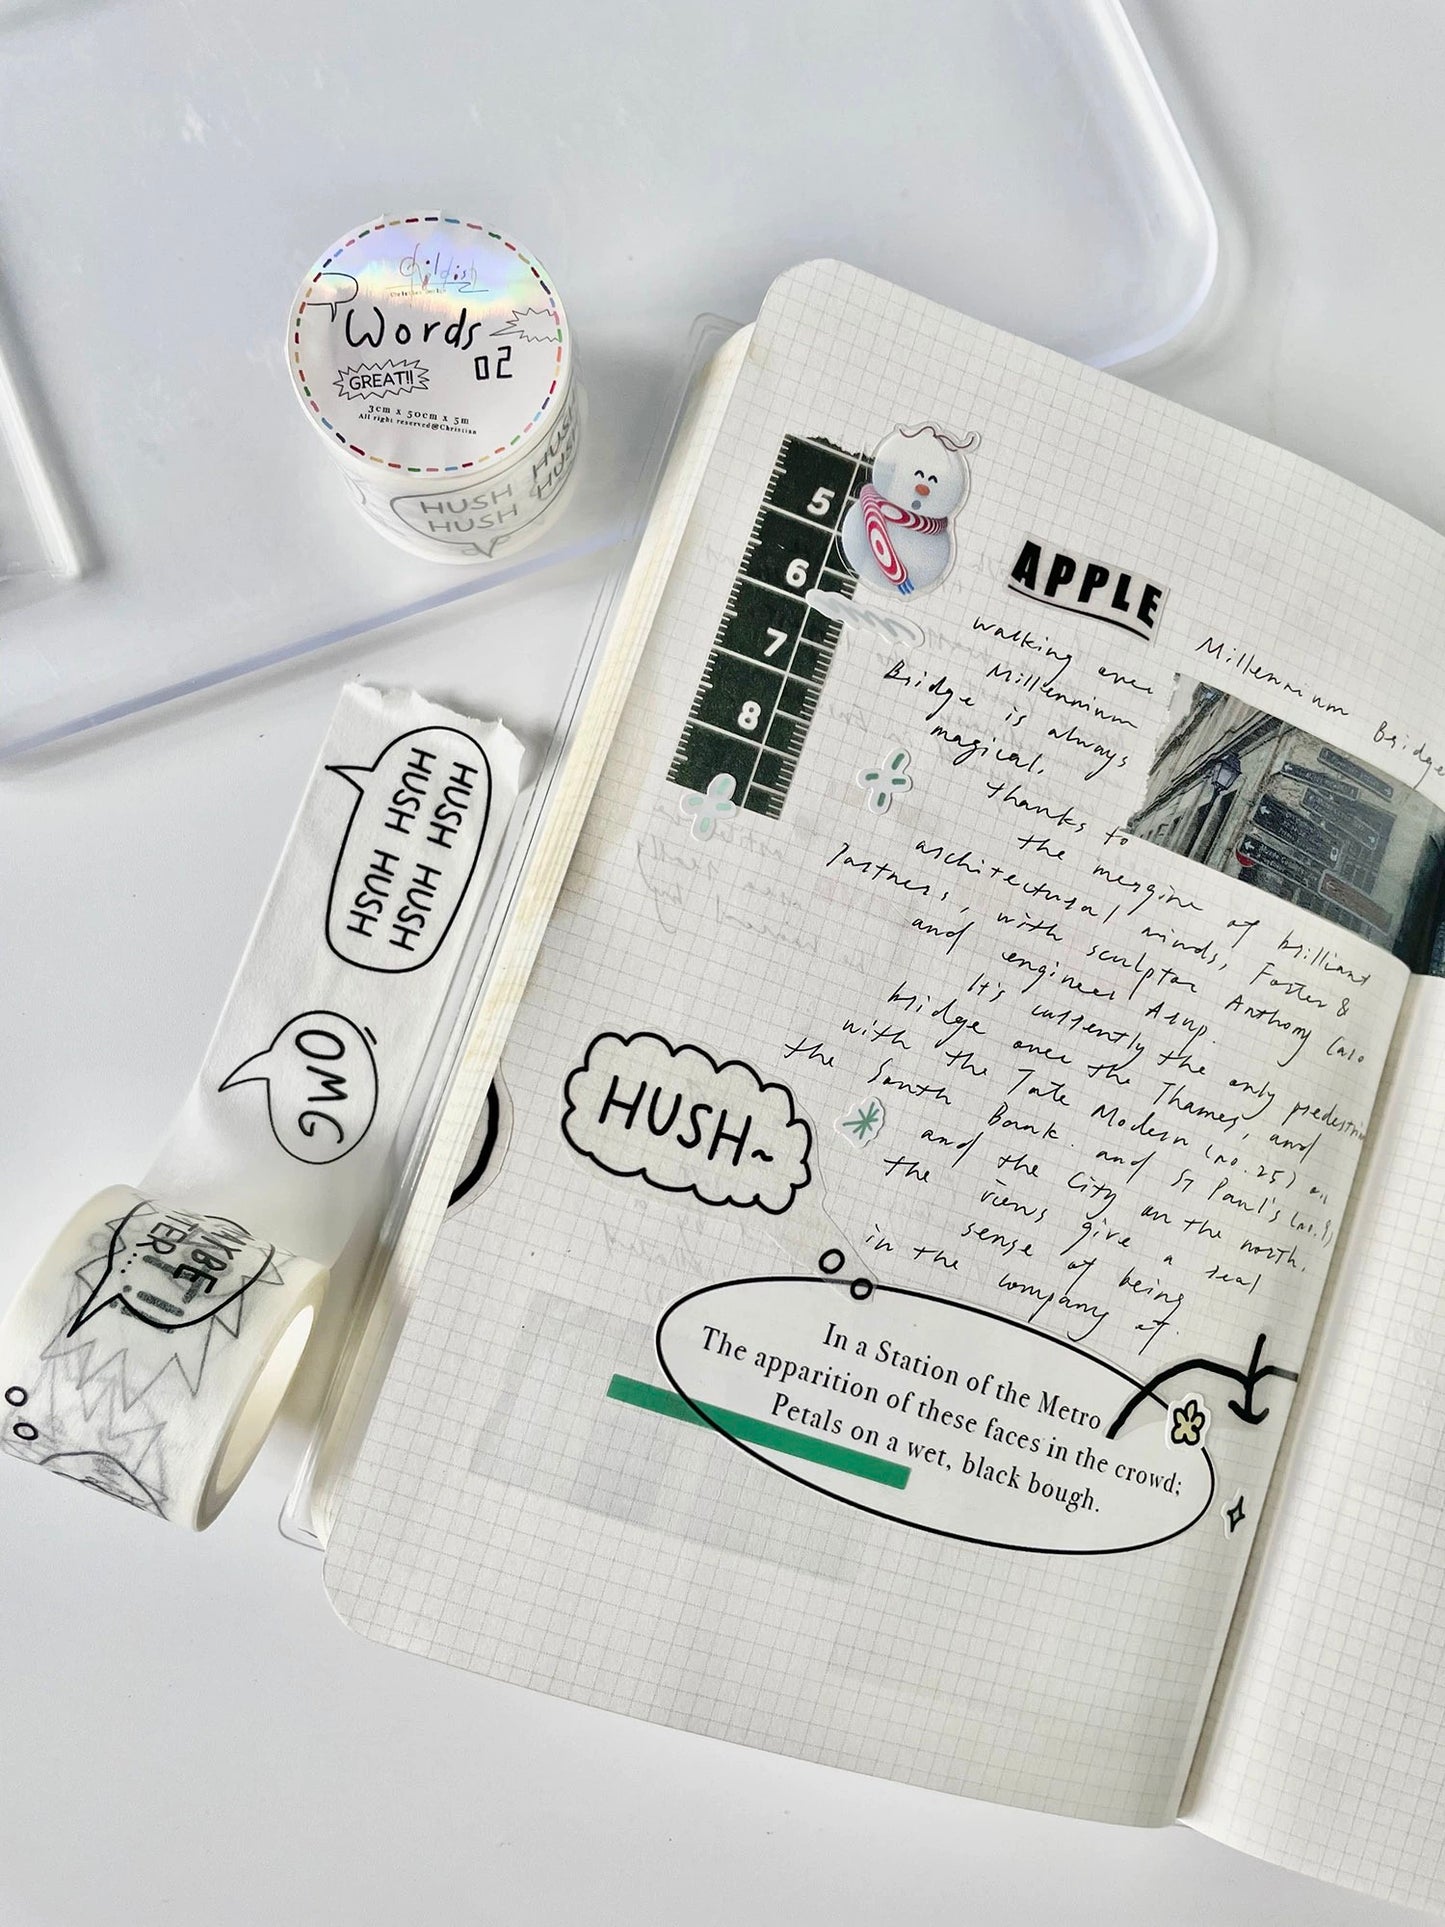 childish
Words
02
GREAT!!
3cm x 50cm x 5m
All right reserved@Christian
HUSH
HUSH
HUSH HUSH
HUSH HUSH
OMG
MAYBE
5
6
7
8
APPLE
Millennium Bridge
Walking over
Millennium
Bridge is always
magical,
thanks to
the mergine of brilliant
architectural minds, Foster &
Partners, with sculptor Anthony Caro
and engineer Arup.
It's currently the only pedestrian
bridge over the Thames, and
with the Tate Modern (no.25) on
the South Bank and St Paul's (no.9)
and the City on the north,
the views give a real
sense of being
in the company of.
HUSH~
In a Station of the Metro
The apparition of these faces in the crowd;
Petals on a wet, black bough.